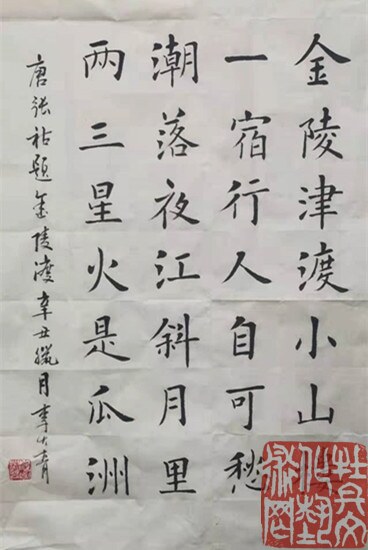 金陵津渡小山
一宿行人自可愁
潮落夜江斜月里
两三星火是瓜洲
唐张祜题金陵渡辛丑臘月李